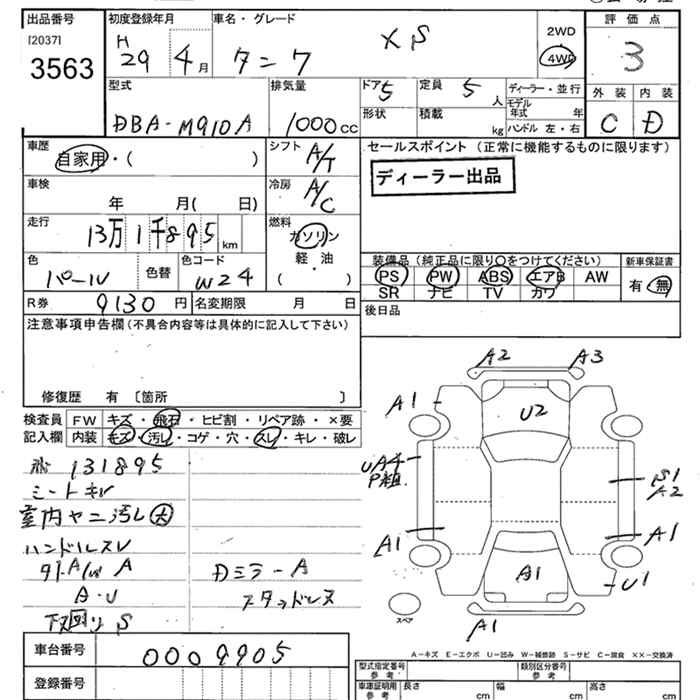 出品番号 初度登録年月 車名・グレード 評価点
[2037]
3563
H 29 4月 タニフ XS 2WD 4WD 3
型式 排気量 ドア 5 定員 5 人 ディーラー・並行 外装 内装
モデル年式 年
DBA-M910A 1000cc 形状 積載 kg ハンドル 左・右 C D
車歴 シフト A/T セールスポイント (正常に機能するものに限ります)
自家用・( )
ディーラー出品
車検 冷房 A/C
年 月( 日)
走行 13万1千895km 燃料 ガソリン
軽・油
( )
色 パール 色替 色コード W24
装備品(純正品に限り○をつけてください) 新車保証書
PS PW ABS エアB AW 有・無
SR ナビ TV カワ
R券 9130円 名変期限 月 日 後日品
注意事項申告欄(不具合内容等は具体的に記入して下さい)
修復歴 有 〔箇所 〕
検査員 FW キズ・飛石・ヒビ割・リペア跡・×要
記入欄 内装 キズ・汚レ・コゲ・穴・スレ・キレ・破レ
131895
シートキレ
室内ヤニ汚レ大
ハンドルスレ
A
A・U
DミラーA
スタッドレス
下回りS
A2 A3
A1 U2
UA4
P組
S1
A2
A1 A1
A1 U1
スペア
A1
車台番号 0009905
登録番号
A-キズ E-エクボ U-凹み W-補修跡 S-サビ C-腐食 ××-交換済
型式指定番号 参考 類別区分番号 参考
車庫証明用 参考 長さ cm 幅 cm 高さ cm